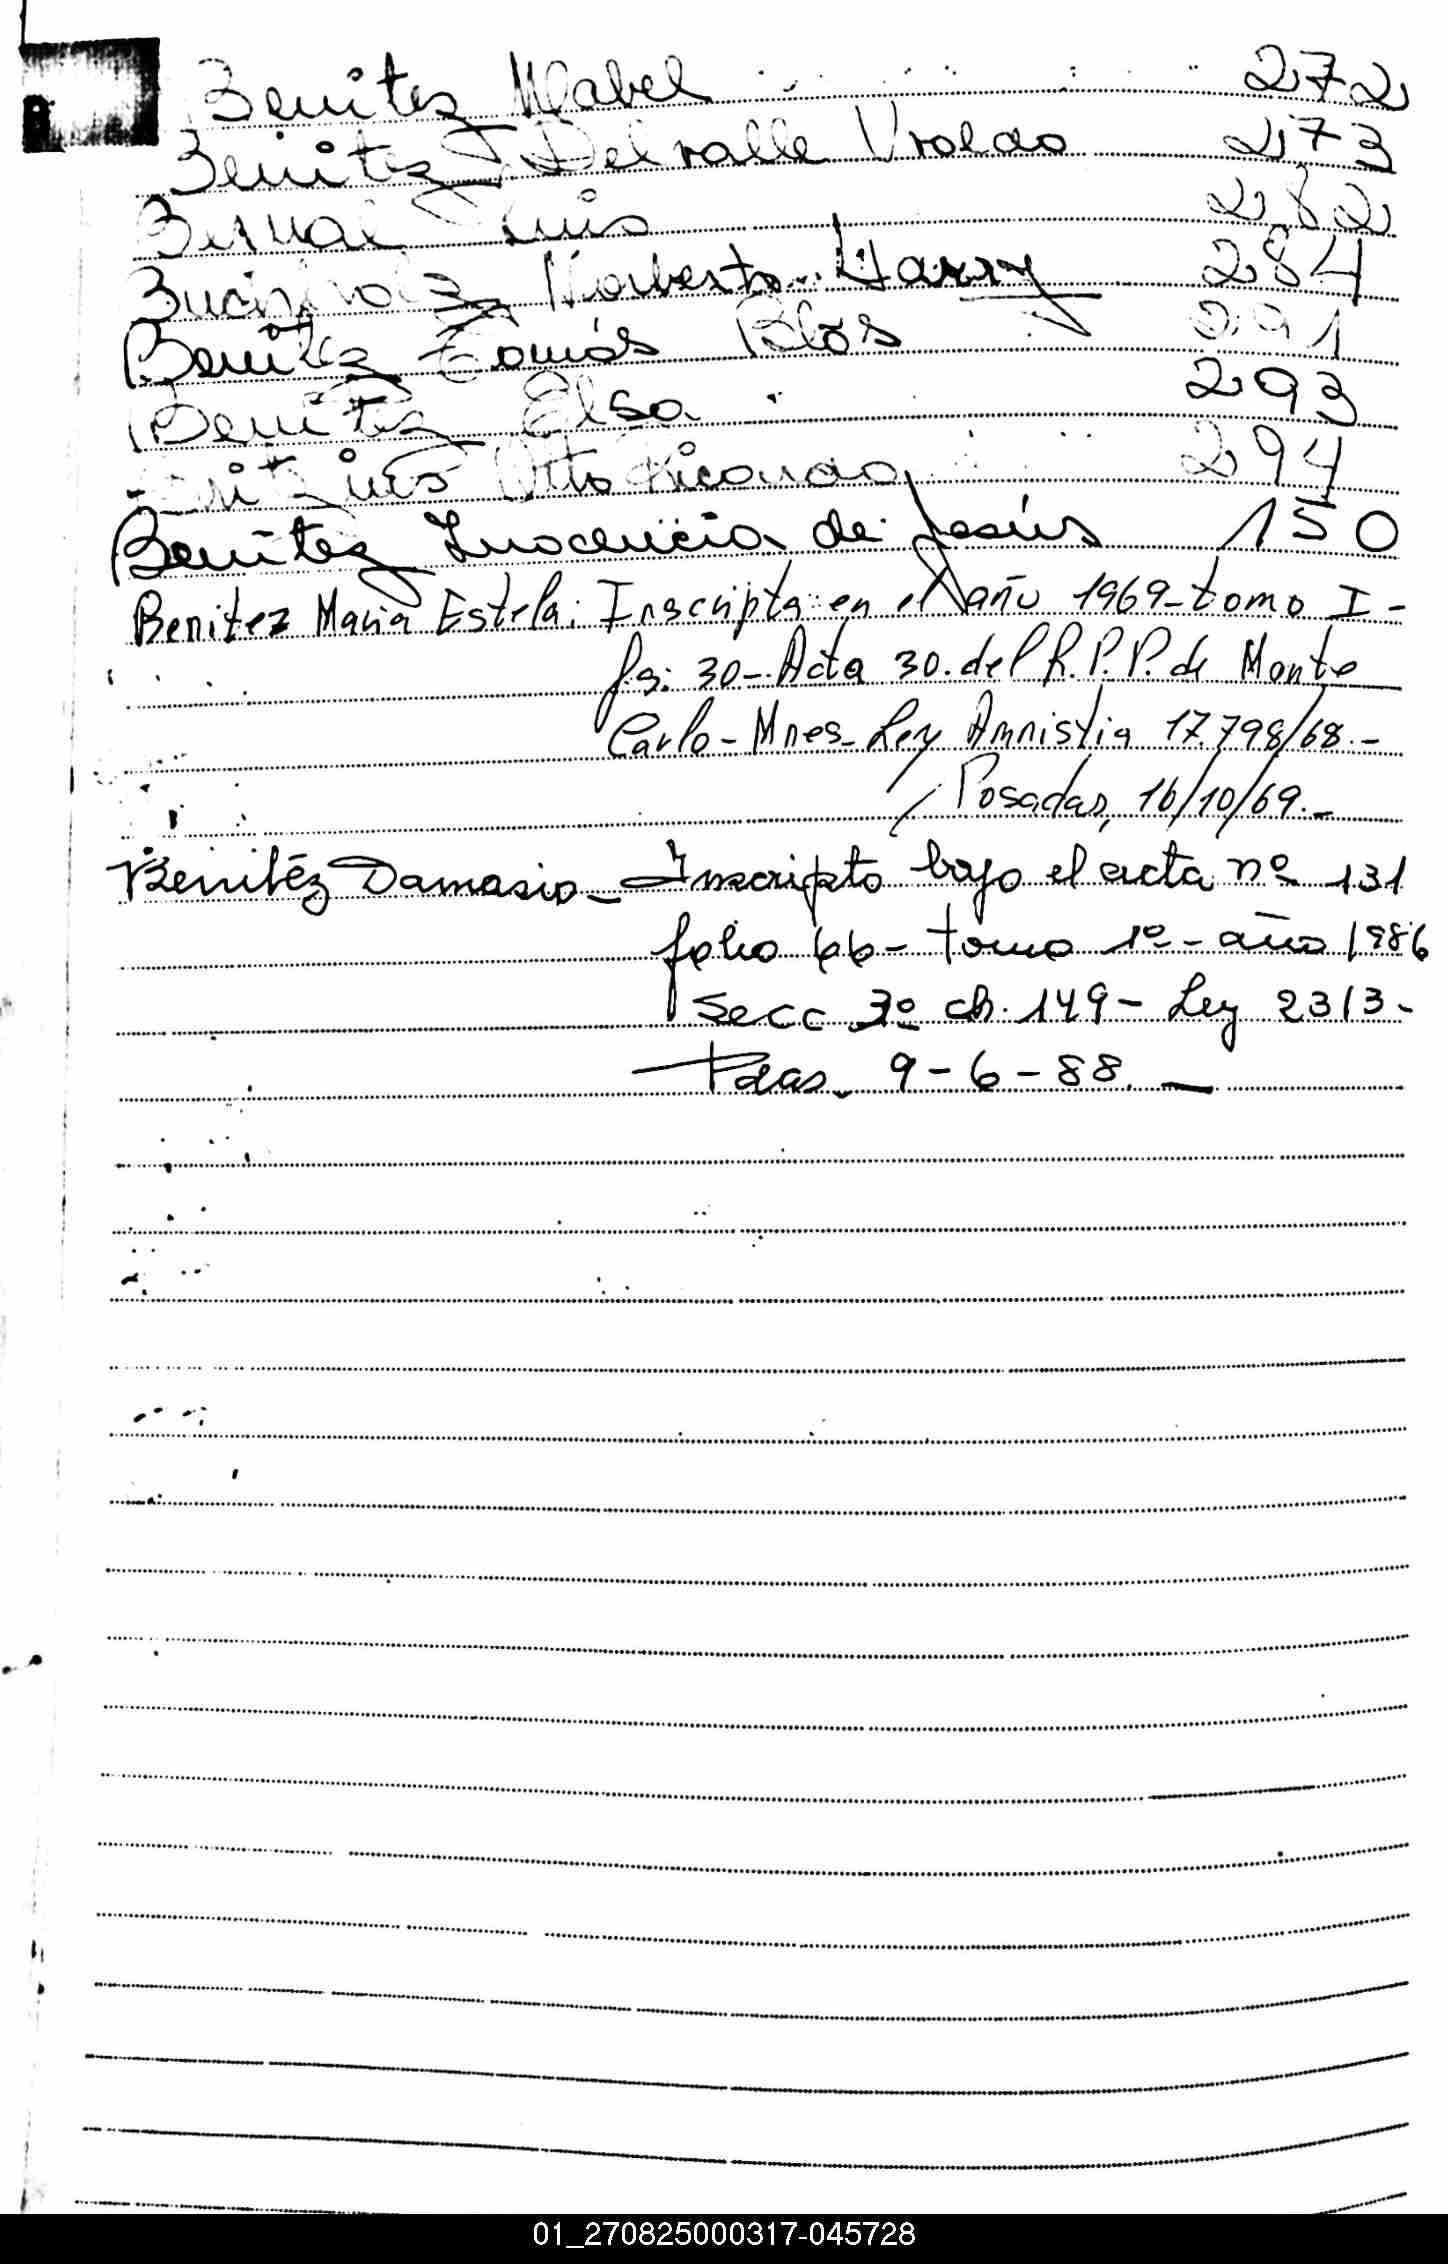 Benitez Mabel 272
Benitez Del valle Uvaldo 273
Bernal Luis 282
Norberto Harry 284
Benitez Tomás Blás 291
Benitez Elsa 293
Otto Ricardo 294
Benitez Inocencia de Jesús 150
Benitez Maria Estela. Inscripta en el año 1969-tomo I-
fs: 30-Acta 30. del R.P.P. de Monte
Carlo-Mnes-Ley Amnistia 17.798/68.-
Posadas, 16/10/69.-
Benitéz Damasio_ Inscripto bajo el acta nº 131
folio 66- tomo 1º- año 1986
Secc 3º ch. 149- Ley 2313-
Pdas. 9-6-88. —
01_270825000317-045728